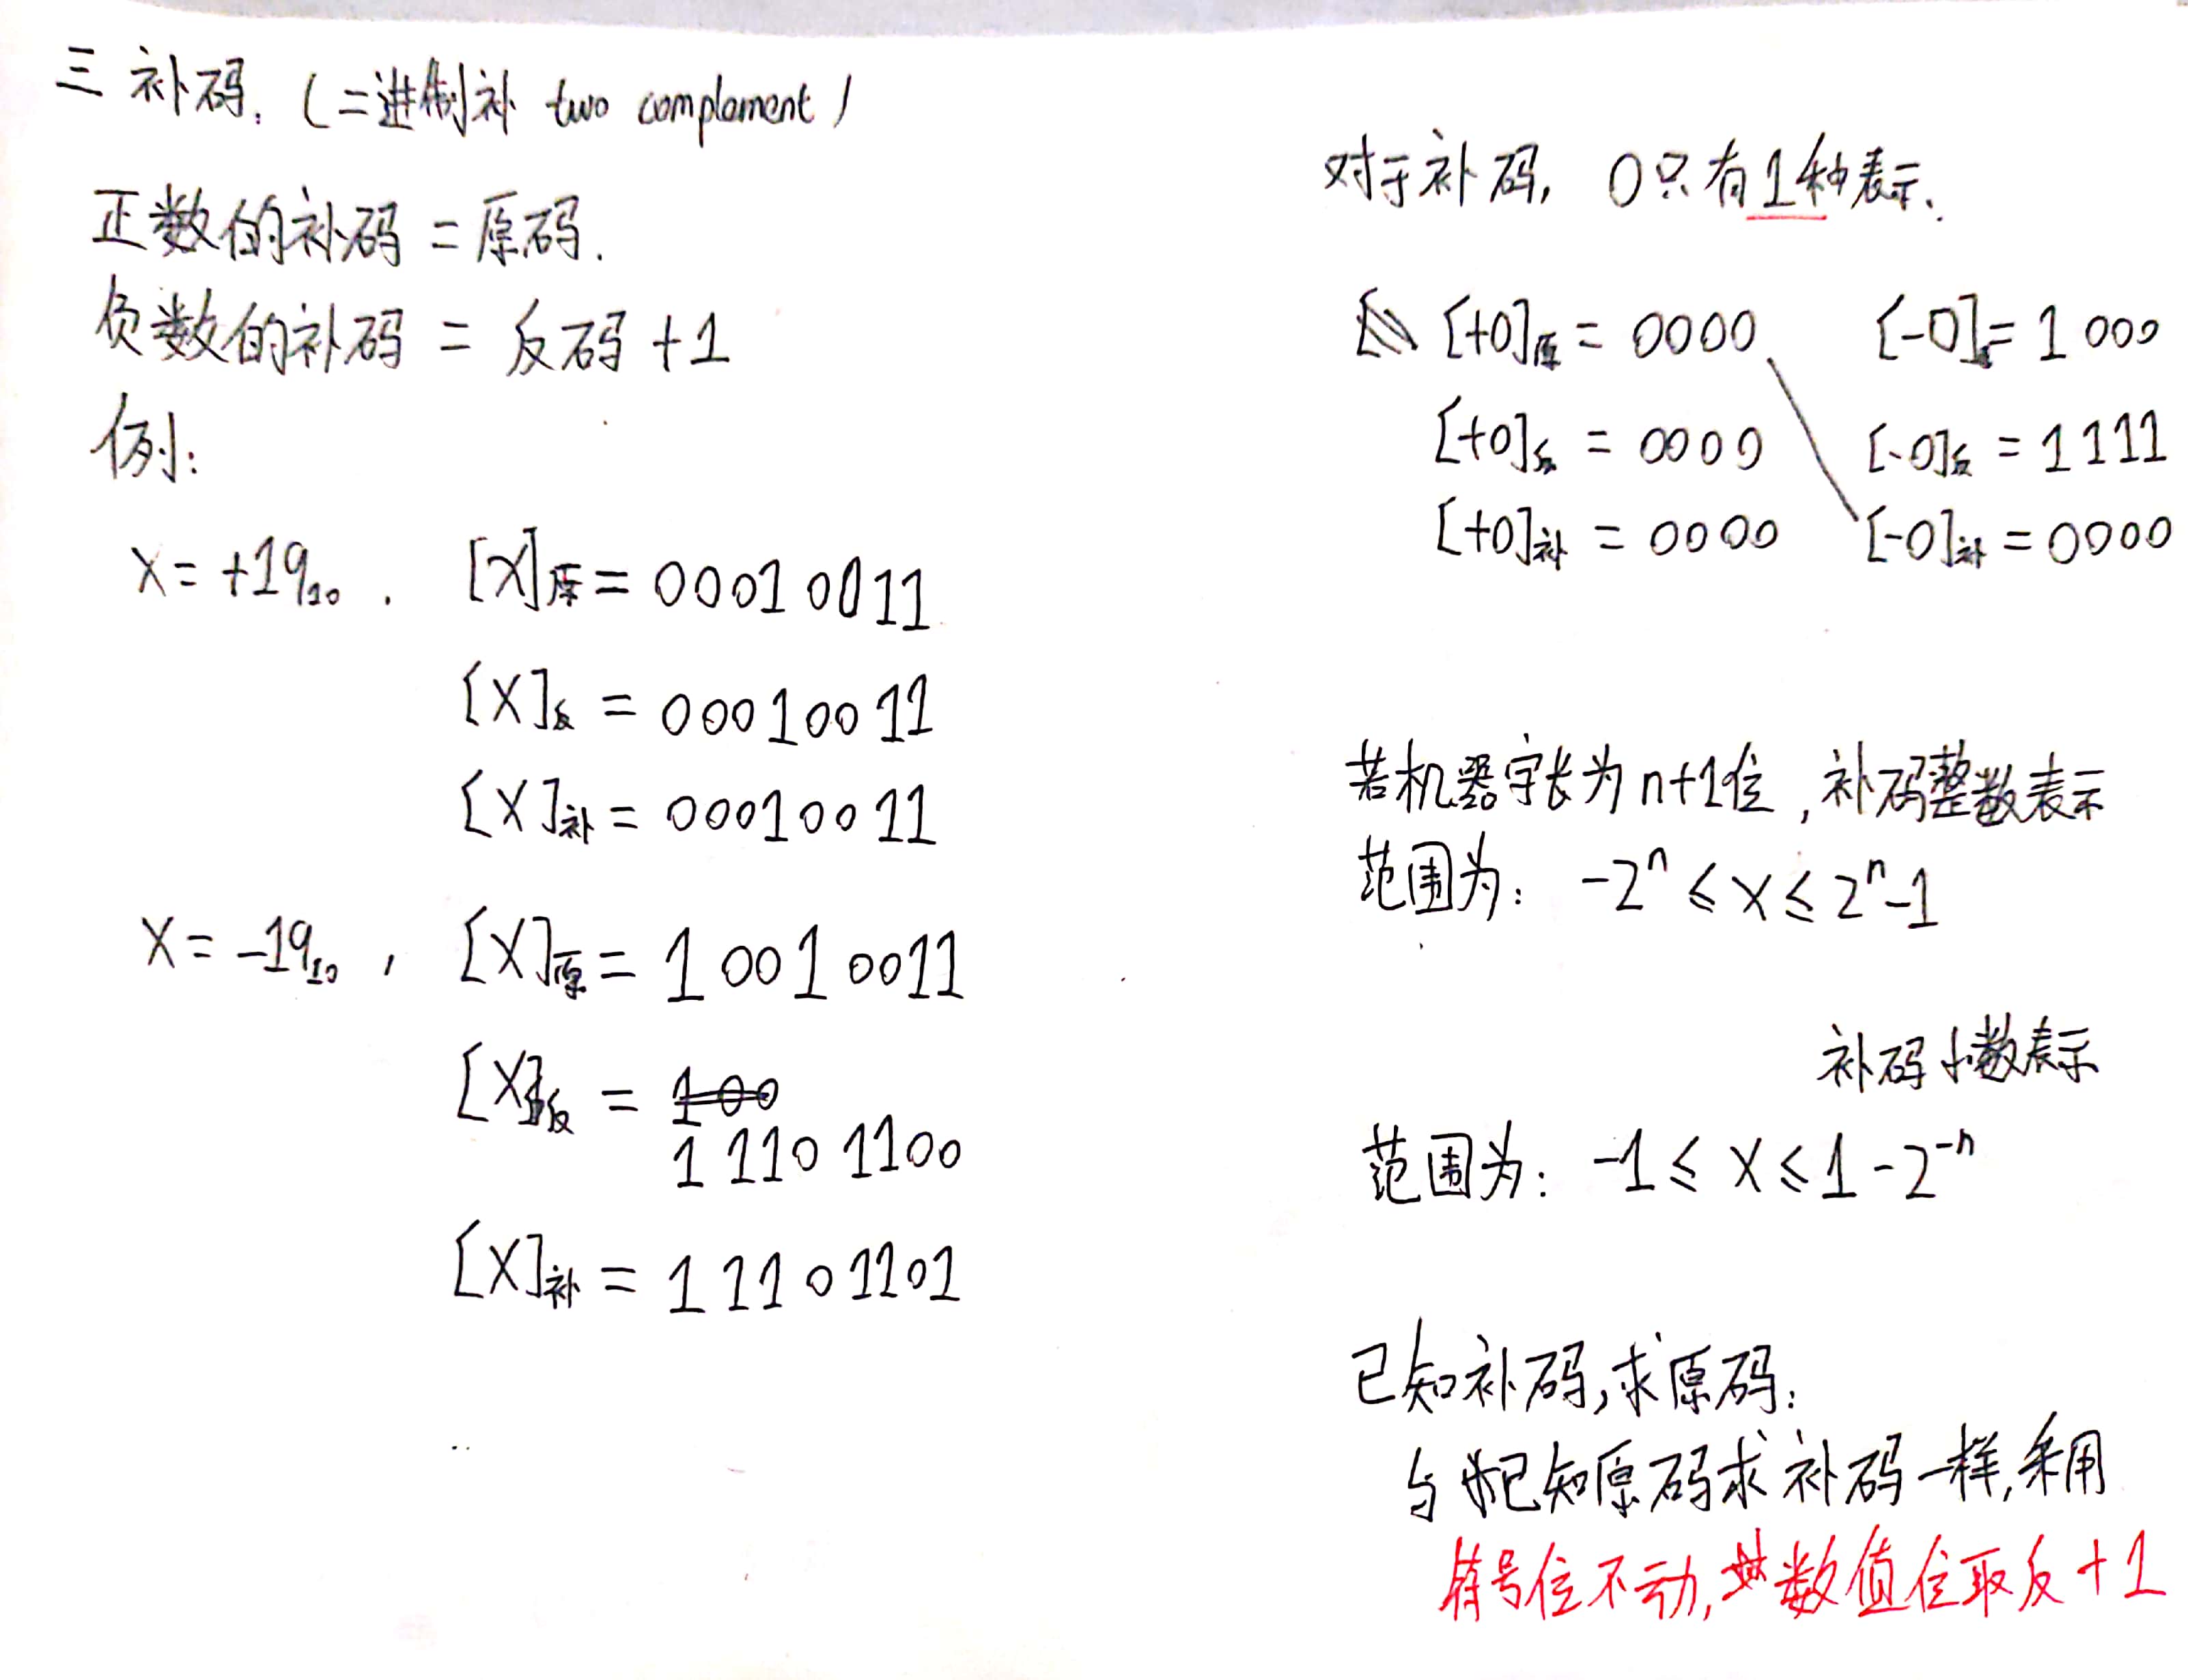 三 补码. (二进制补 two complament)
正数的补码 = 原码.
负数的补码 = 反码 +1
例:
X = +19₁₀ . [X]原 = 0001 0011
[X]反 = 0001 0011
[X]补 = 0001 0011
X = -19₁₀ , [X]原 = 1 001 0011
[X]反 = 100
1 110 1100
[X]补 = 1 110 1101
对于补码, 0只有1种表示.
[+0]原 = 0000 [-0]原 = 1 000
[+0]反 = 0000 [-0]反 = 1111
[+0]补 = 0000 [-0]补 = 0000
若机器字长为 n+1位, 补码整数表示
范围为: -2ⁿ ≤ X ≤ 2ⁿ-1
补码小数表示
范围为: -1 ≤ X ≤ 1 - 2⁻ⁿ
已知补码,求原码:
与已知原码求补码一样,采用
符号位不动, 数值位取反 +1